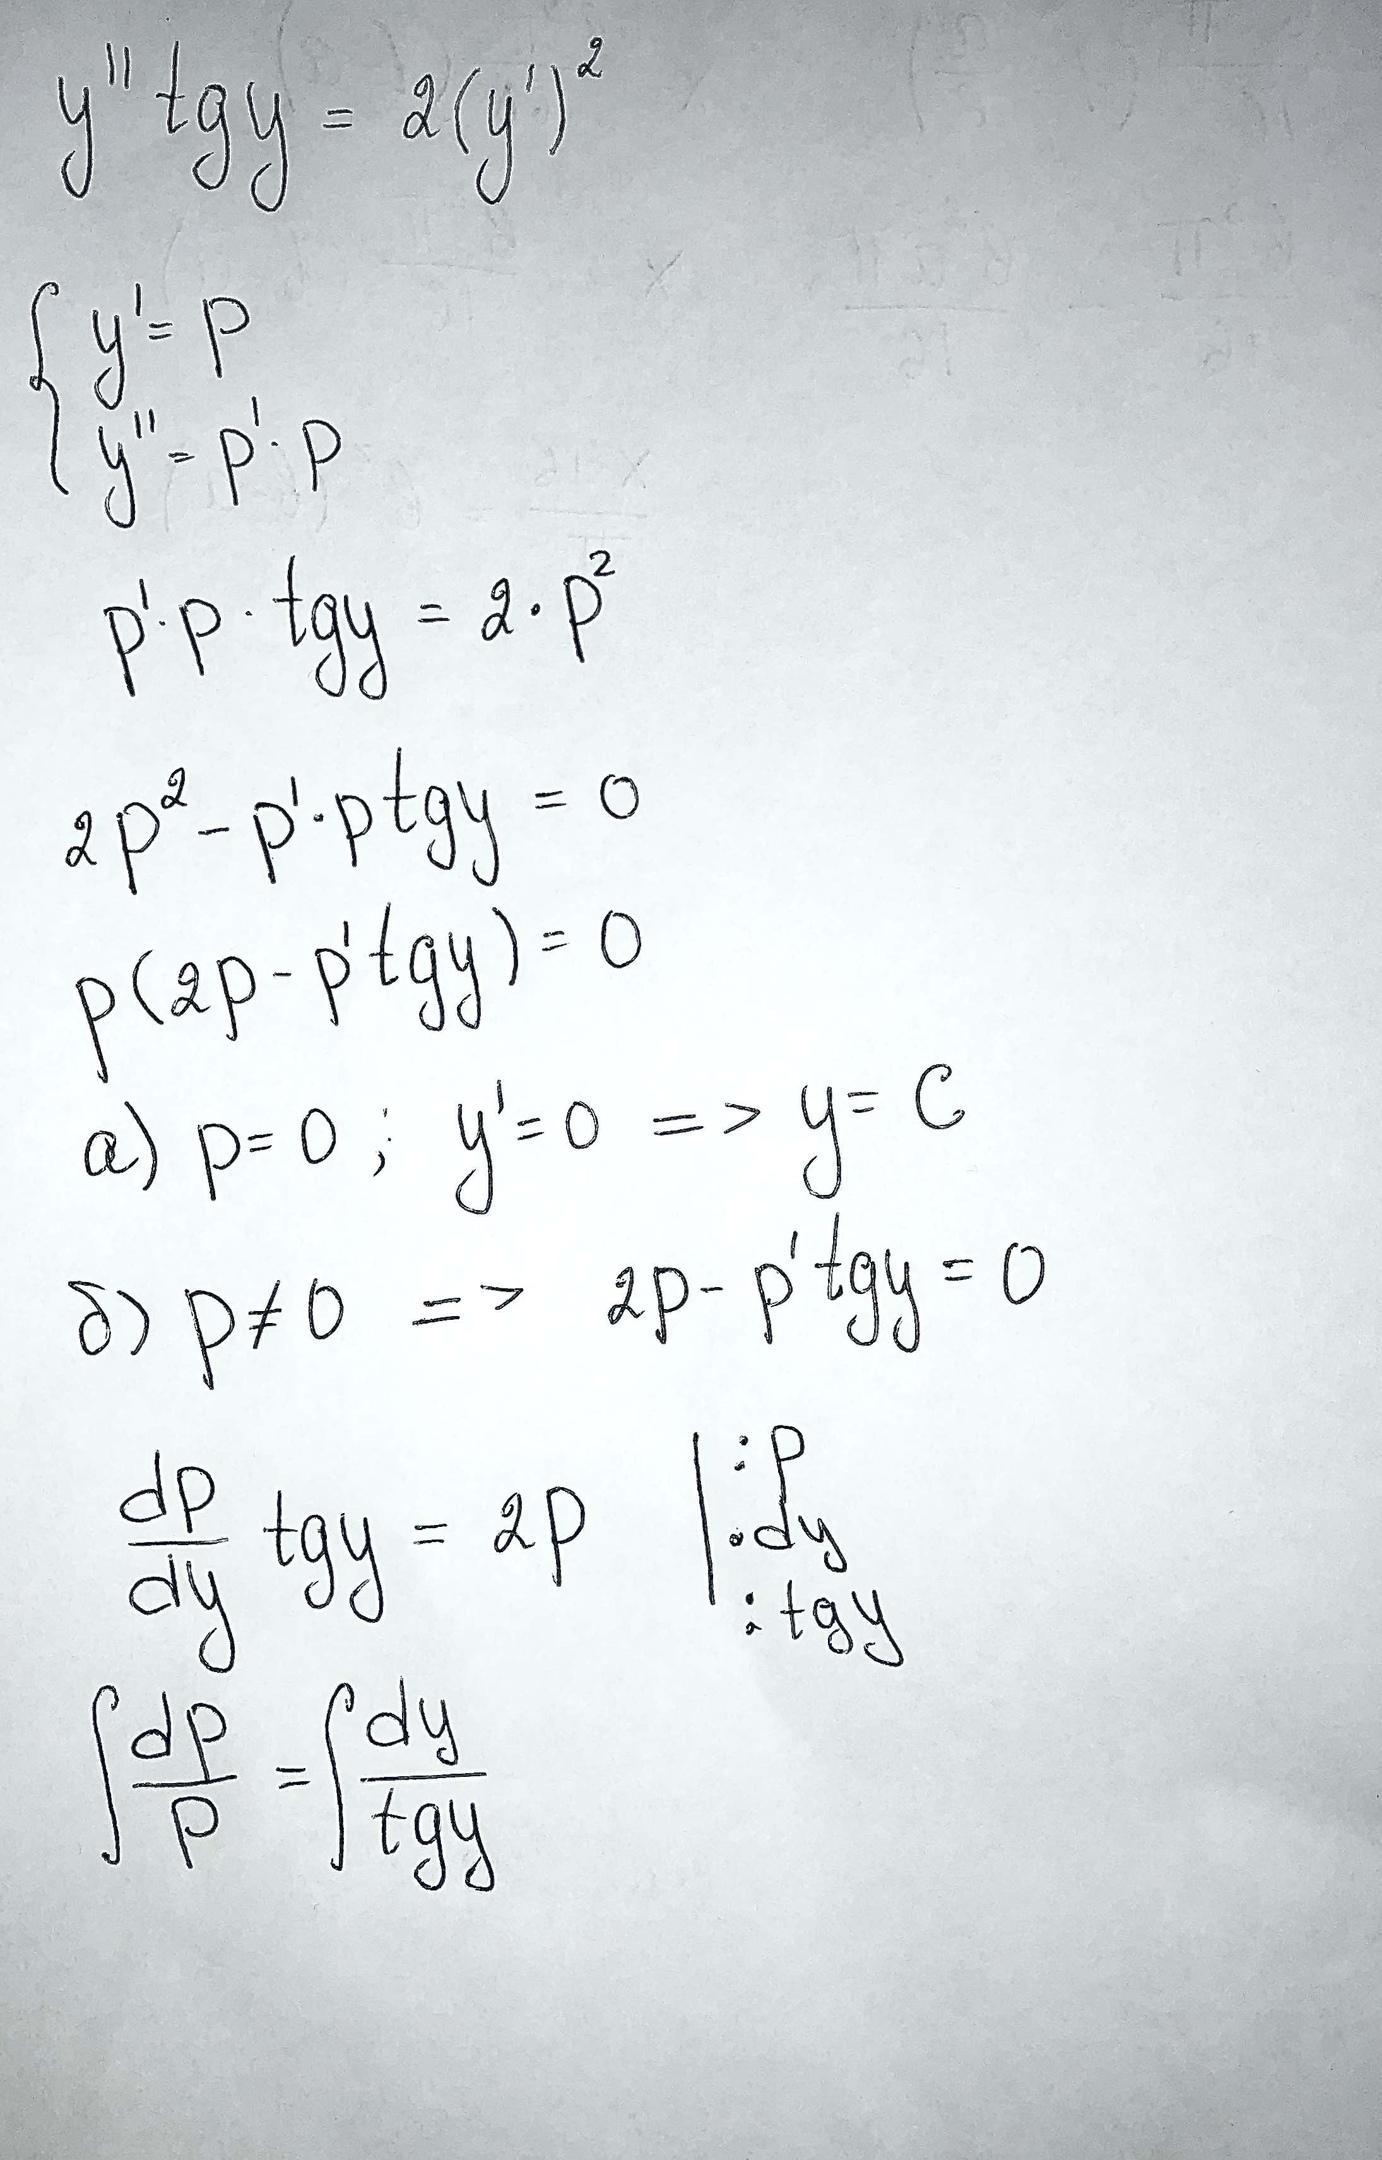 y'' tgy = 2(y')²
{ y' = p
y'' = p'·p
p'·p·tgy = 2·p²
2p² - p'·ptgy = 0
p(2p - p'tgy) = 0
а) p=0; y'=0 => y= C
б) p≠0 => 2p - p'tgy = 0
dp/dy tgy = 2p | :p
·dy
:tgy
∫dp/p = ∫dy/tgy